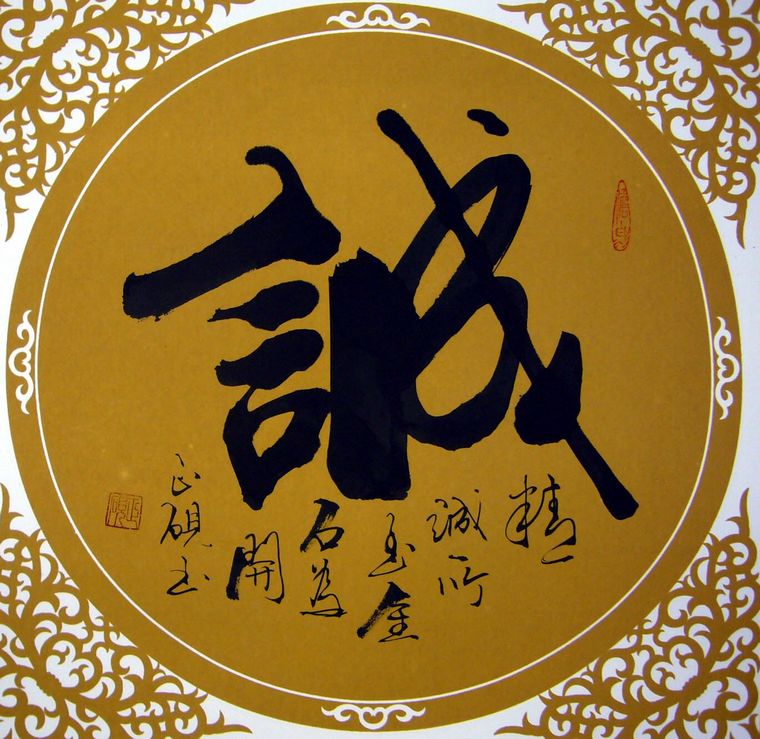 誠
精
誠所
至金
石為
開
正硯書